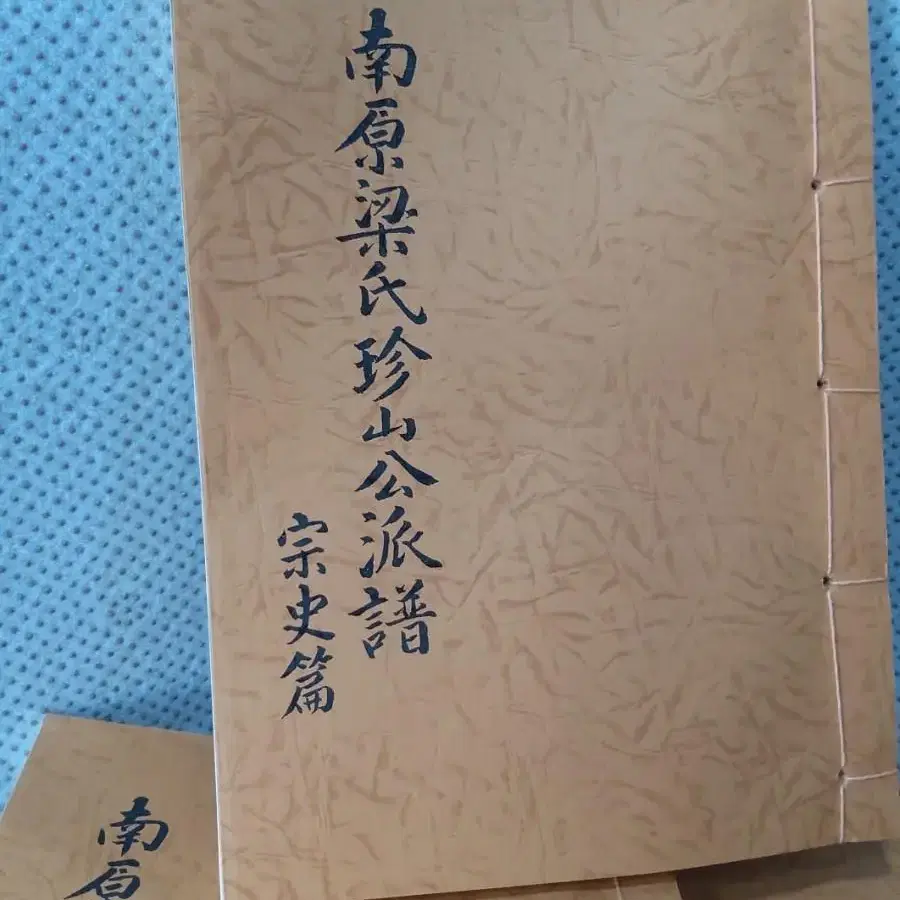 南原梁氏珍山公派譜
宗史篇
南原